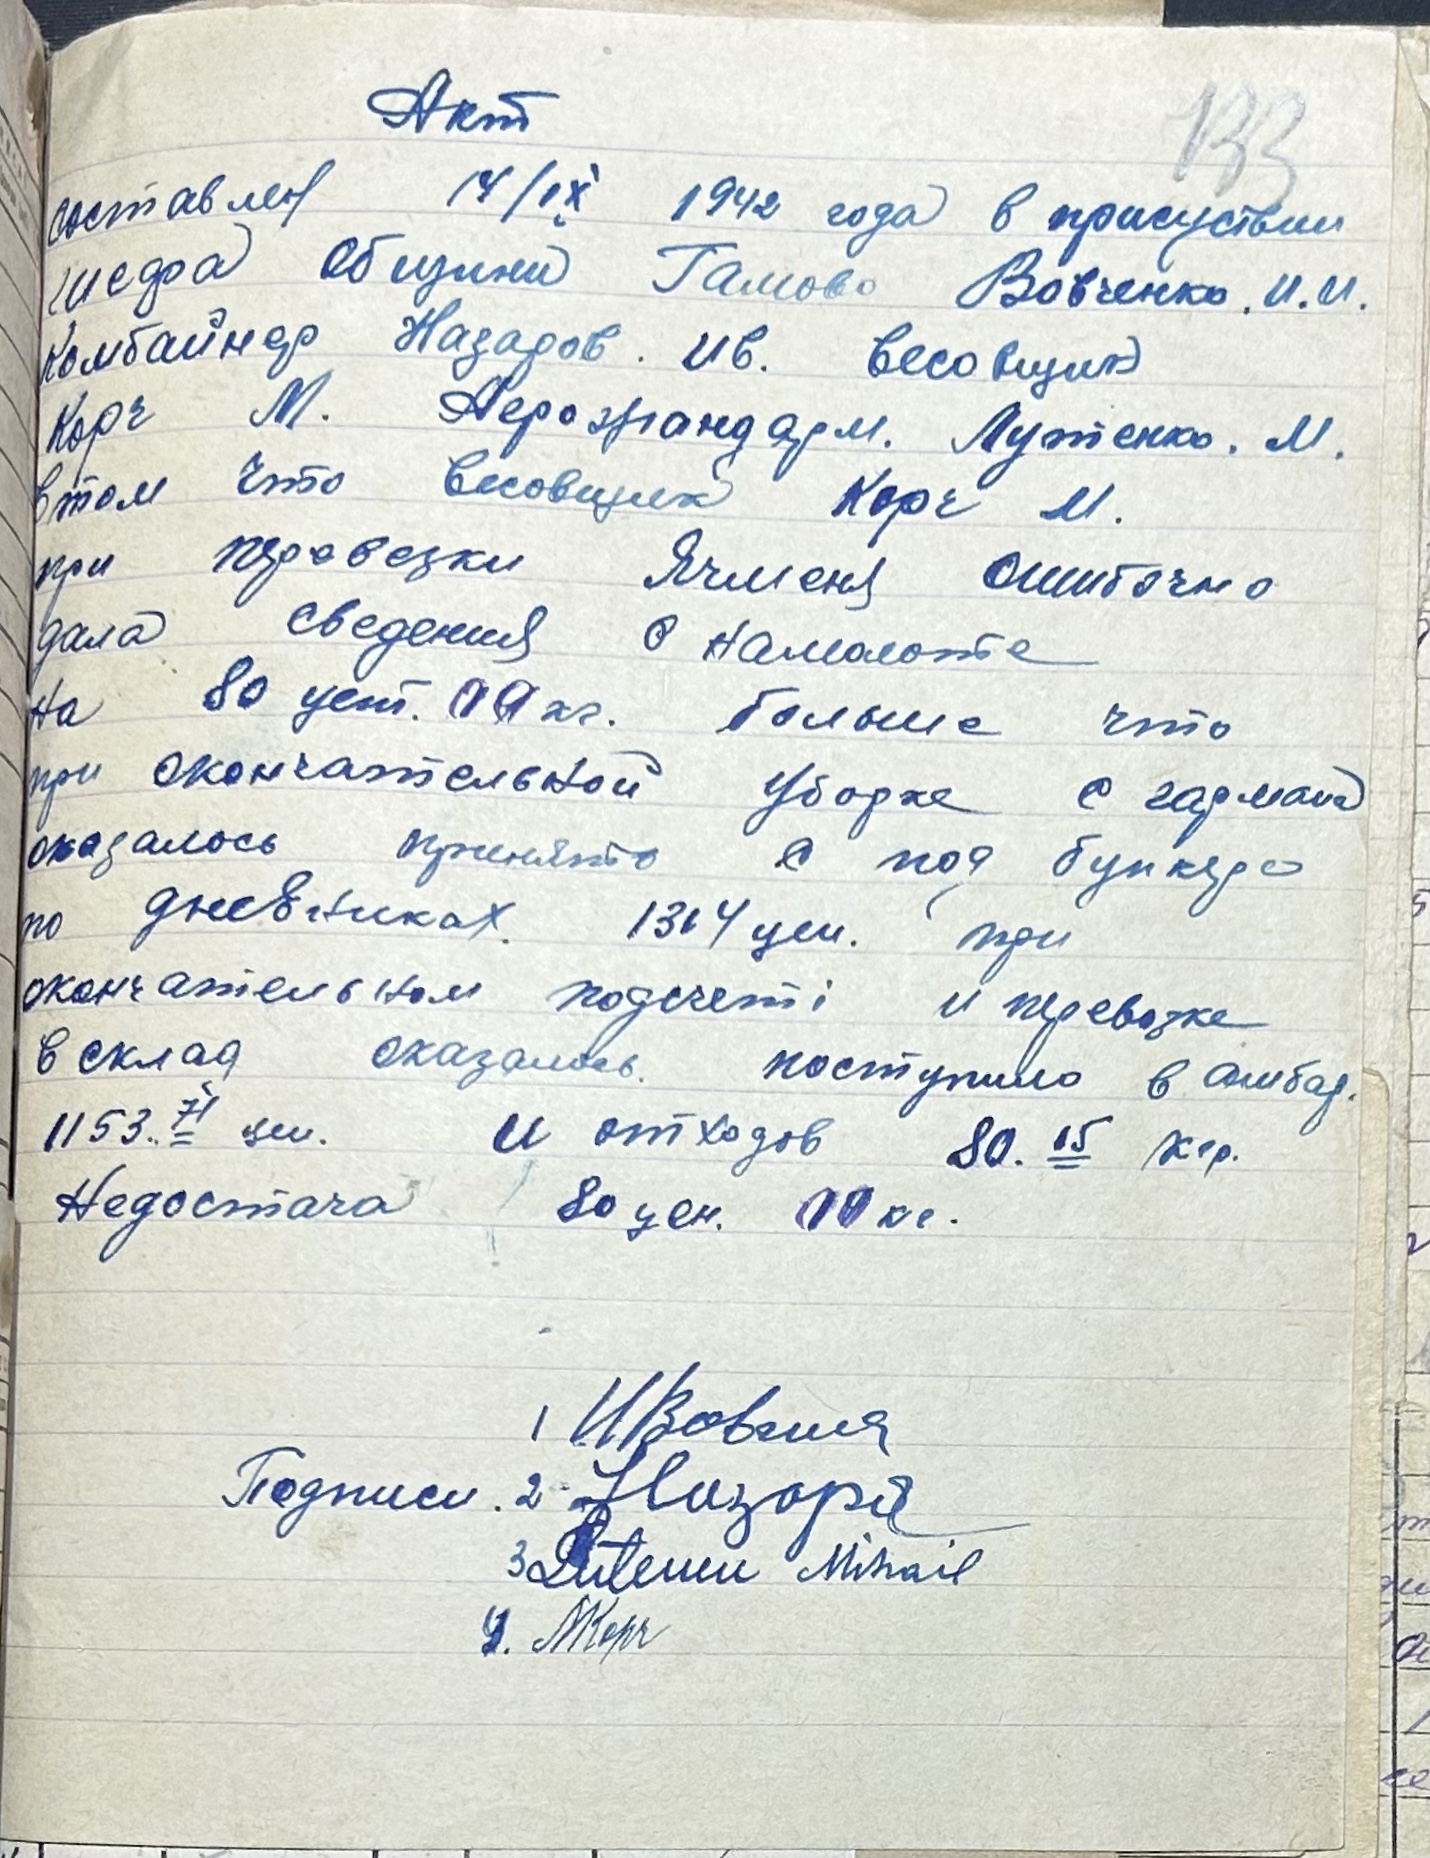 133
Акт
составлен 14/IX 1942 года в присуствии
шефра общини Гамово Вовченко. И.И.
Комбайнер Назаров. Ив. весовщик
Корч М. Агрожандарм. Лутенко. М.
в том что весовщик Корч М.
при перевезки Ячменя ошибочно
дала сведения о намолоте
на 80 цент. кг. больше что
при окончательной уборке с гармана
оказалось принято с под бункера
по дневниках. 1314 цен. при
окончательном подсчеті и перевозке
в склад оказалось. поступило в амбар.
1153.71 цен. и отходов 80.15 кгр.
Недостача 80 цен. кг.
1 ИВовченко
Подписи. 2 Назаров
3 Mihail
4. МКорч